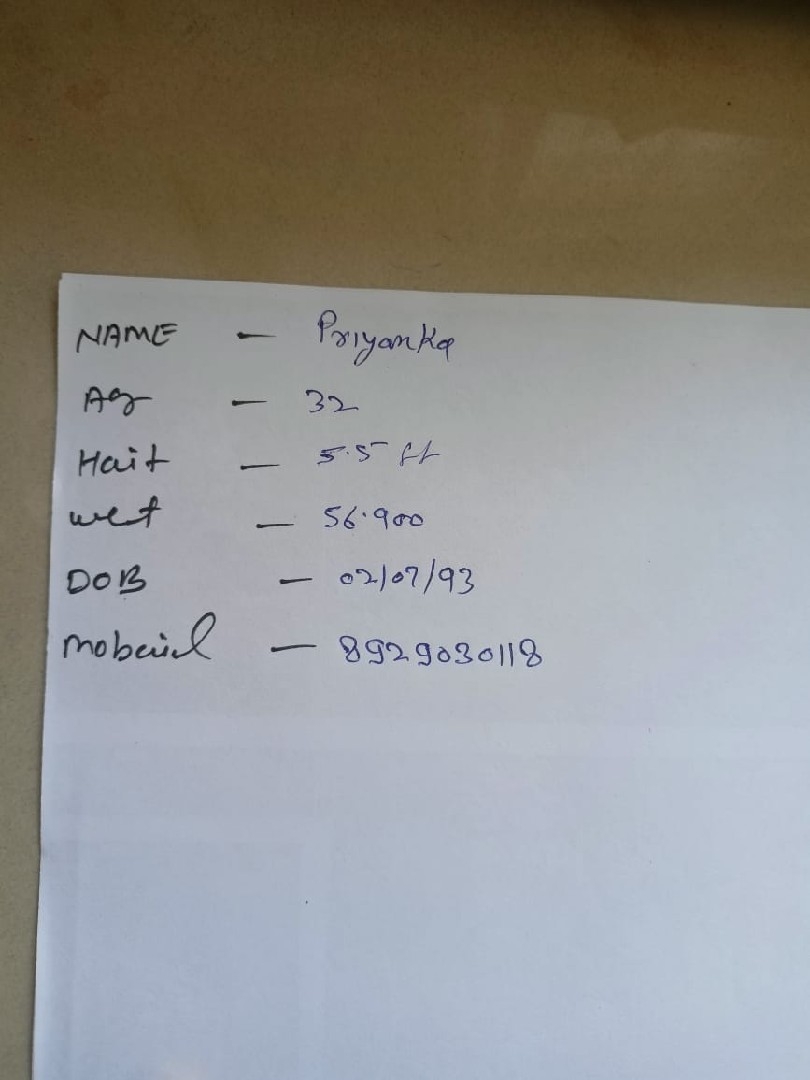 NAME — Priyanka
Ag — 32
Hait — 5.5 ft
wet — 56.900
DOB — 02/07/93
mobeiul — 8929030118